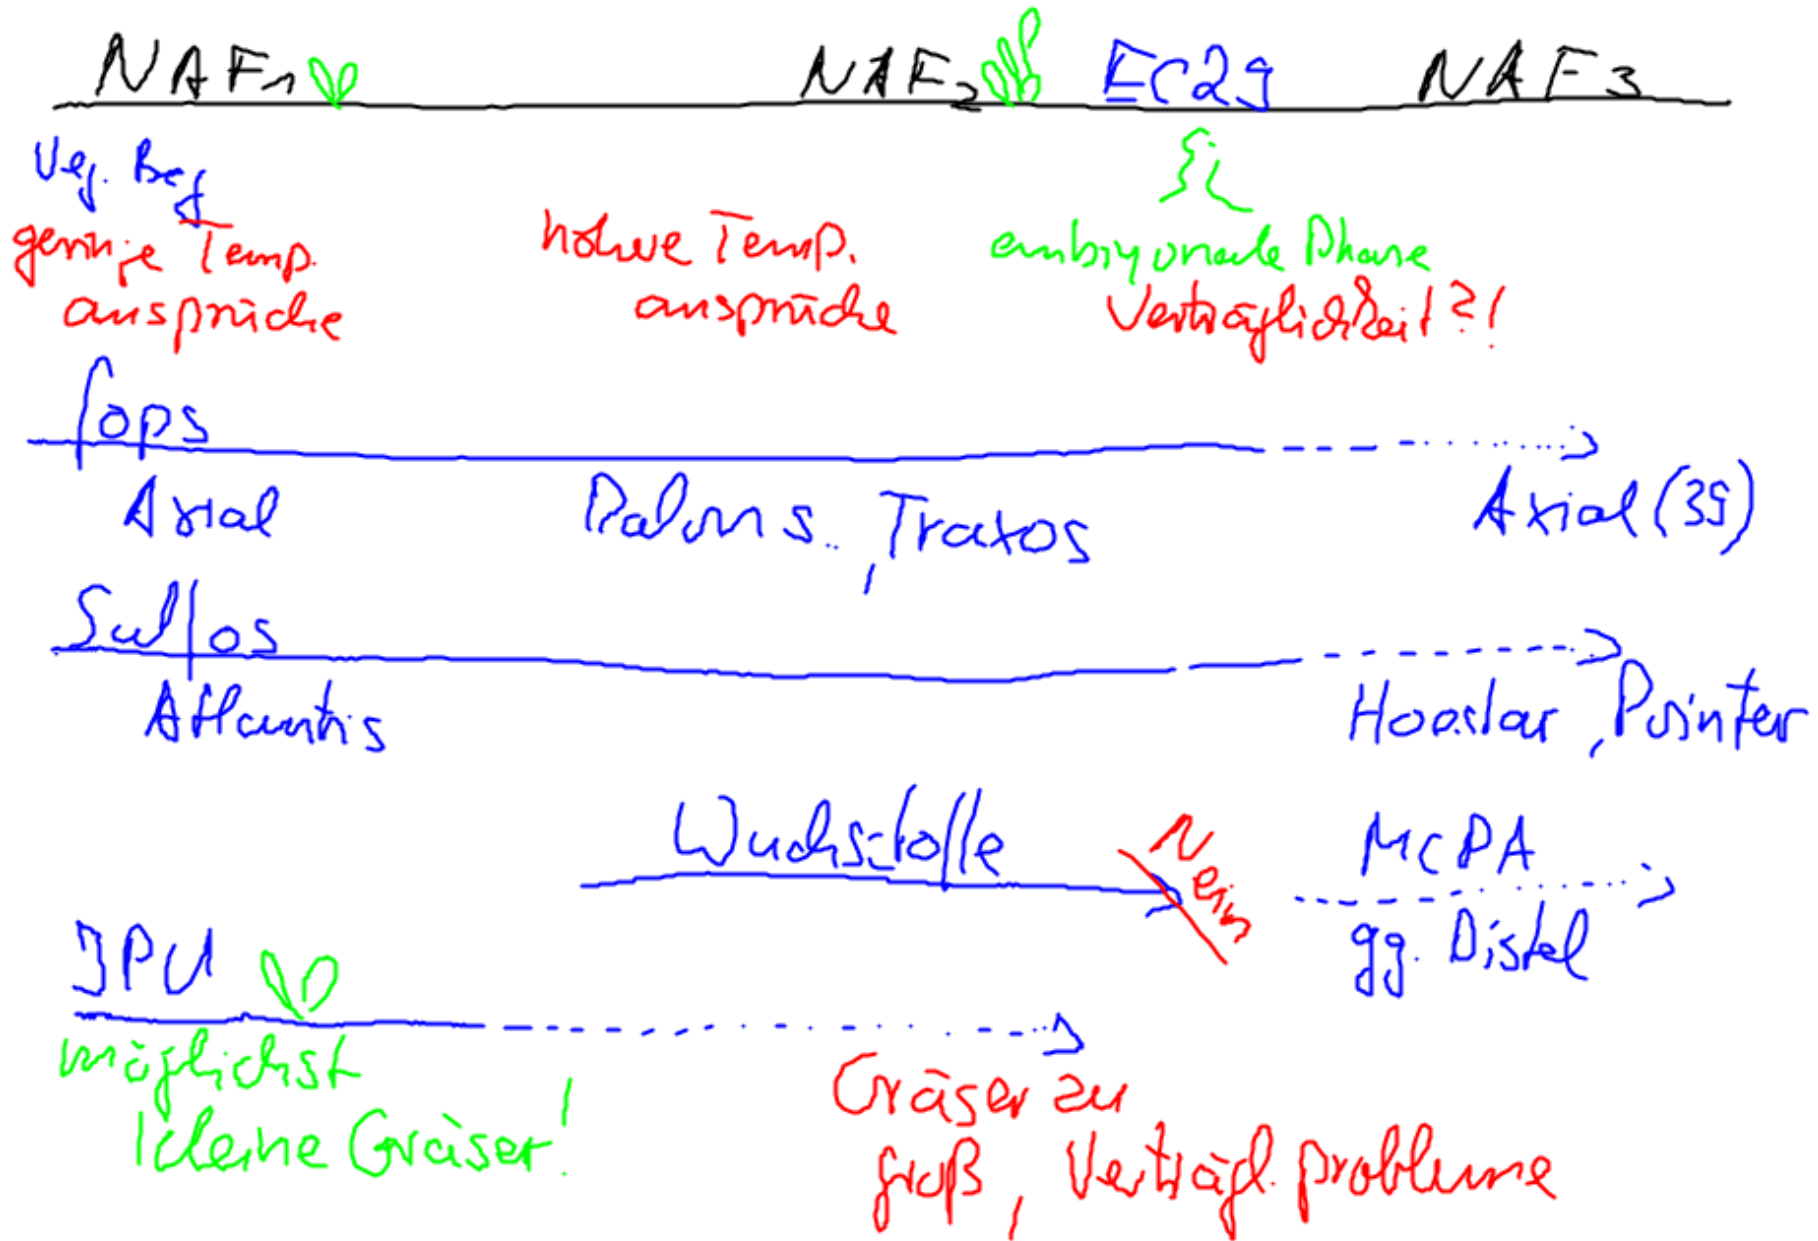 NAF1 NAF2 EC29 NAF3
Veg. Beg
geringe Temp. hohe Temp. embryonale Phase
ansprüche ansprüche Verträglichkeit?!
fops
Axial Traxos Axial (39)
Sulfos
Atlantis Hoestar, Pointer
Wuchsstoffe Nein MCPA
gg. Distel
IPU
möglichst
kleine Gräser!
Gräser zu
groß, Verträgl. probleme